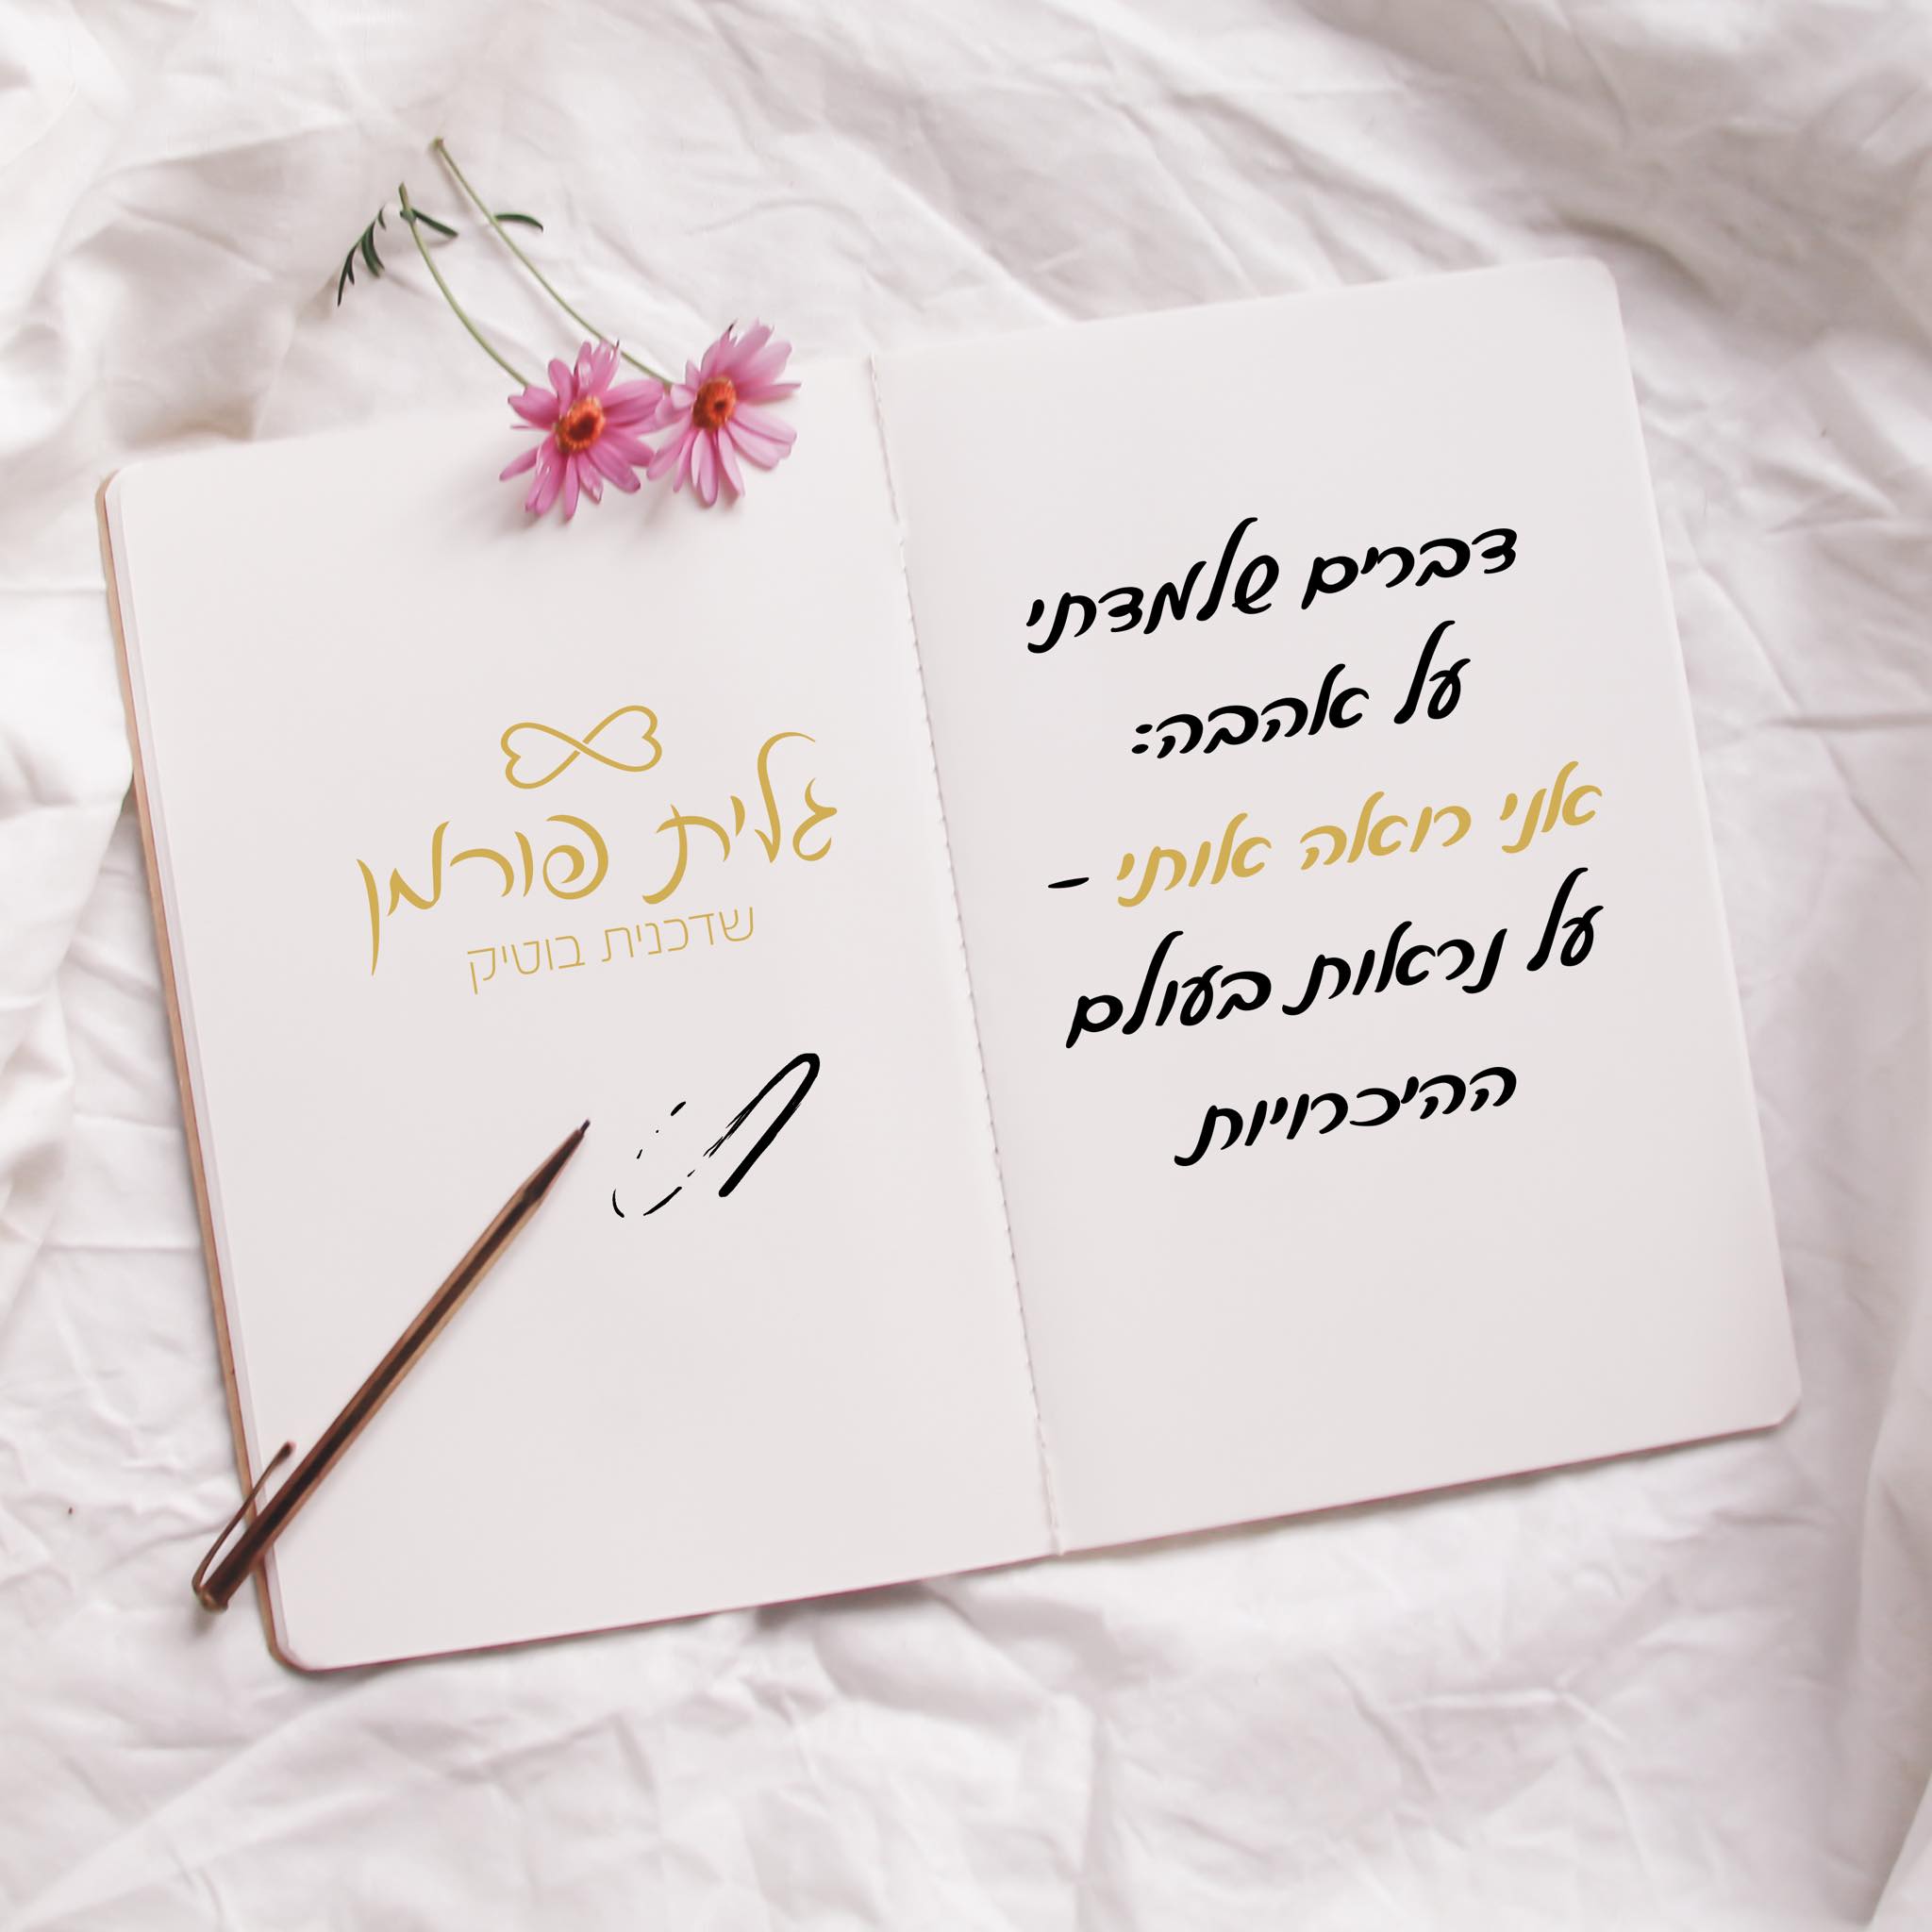 דברים שלמדתי
על אהבה:
אני רואה אותי –
על נראות בעולם
ההיכרויות
גלית פורמן
שדכנית בוטיק